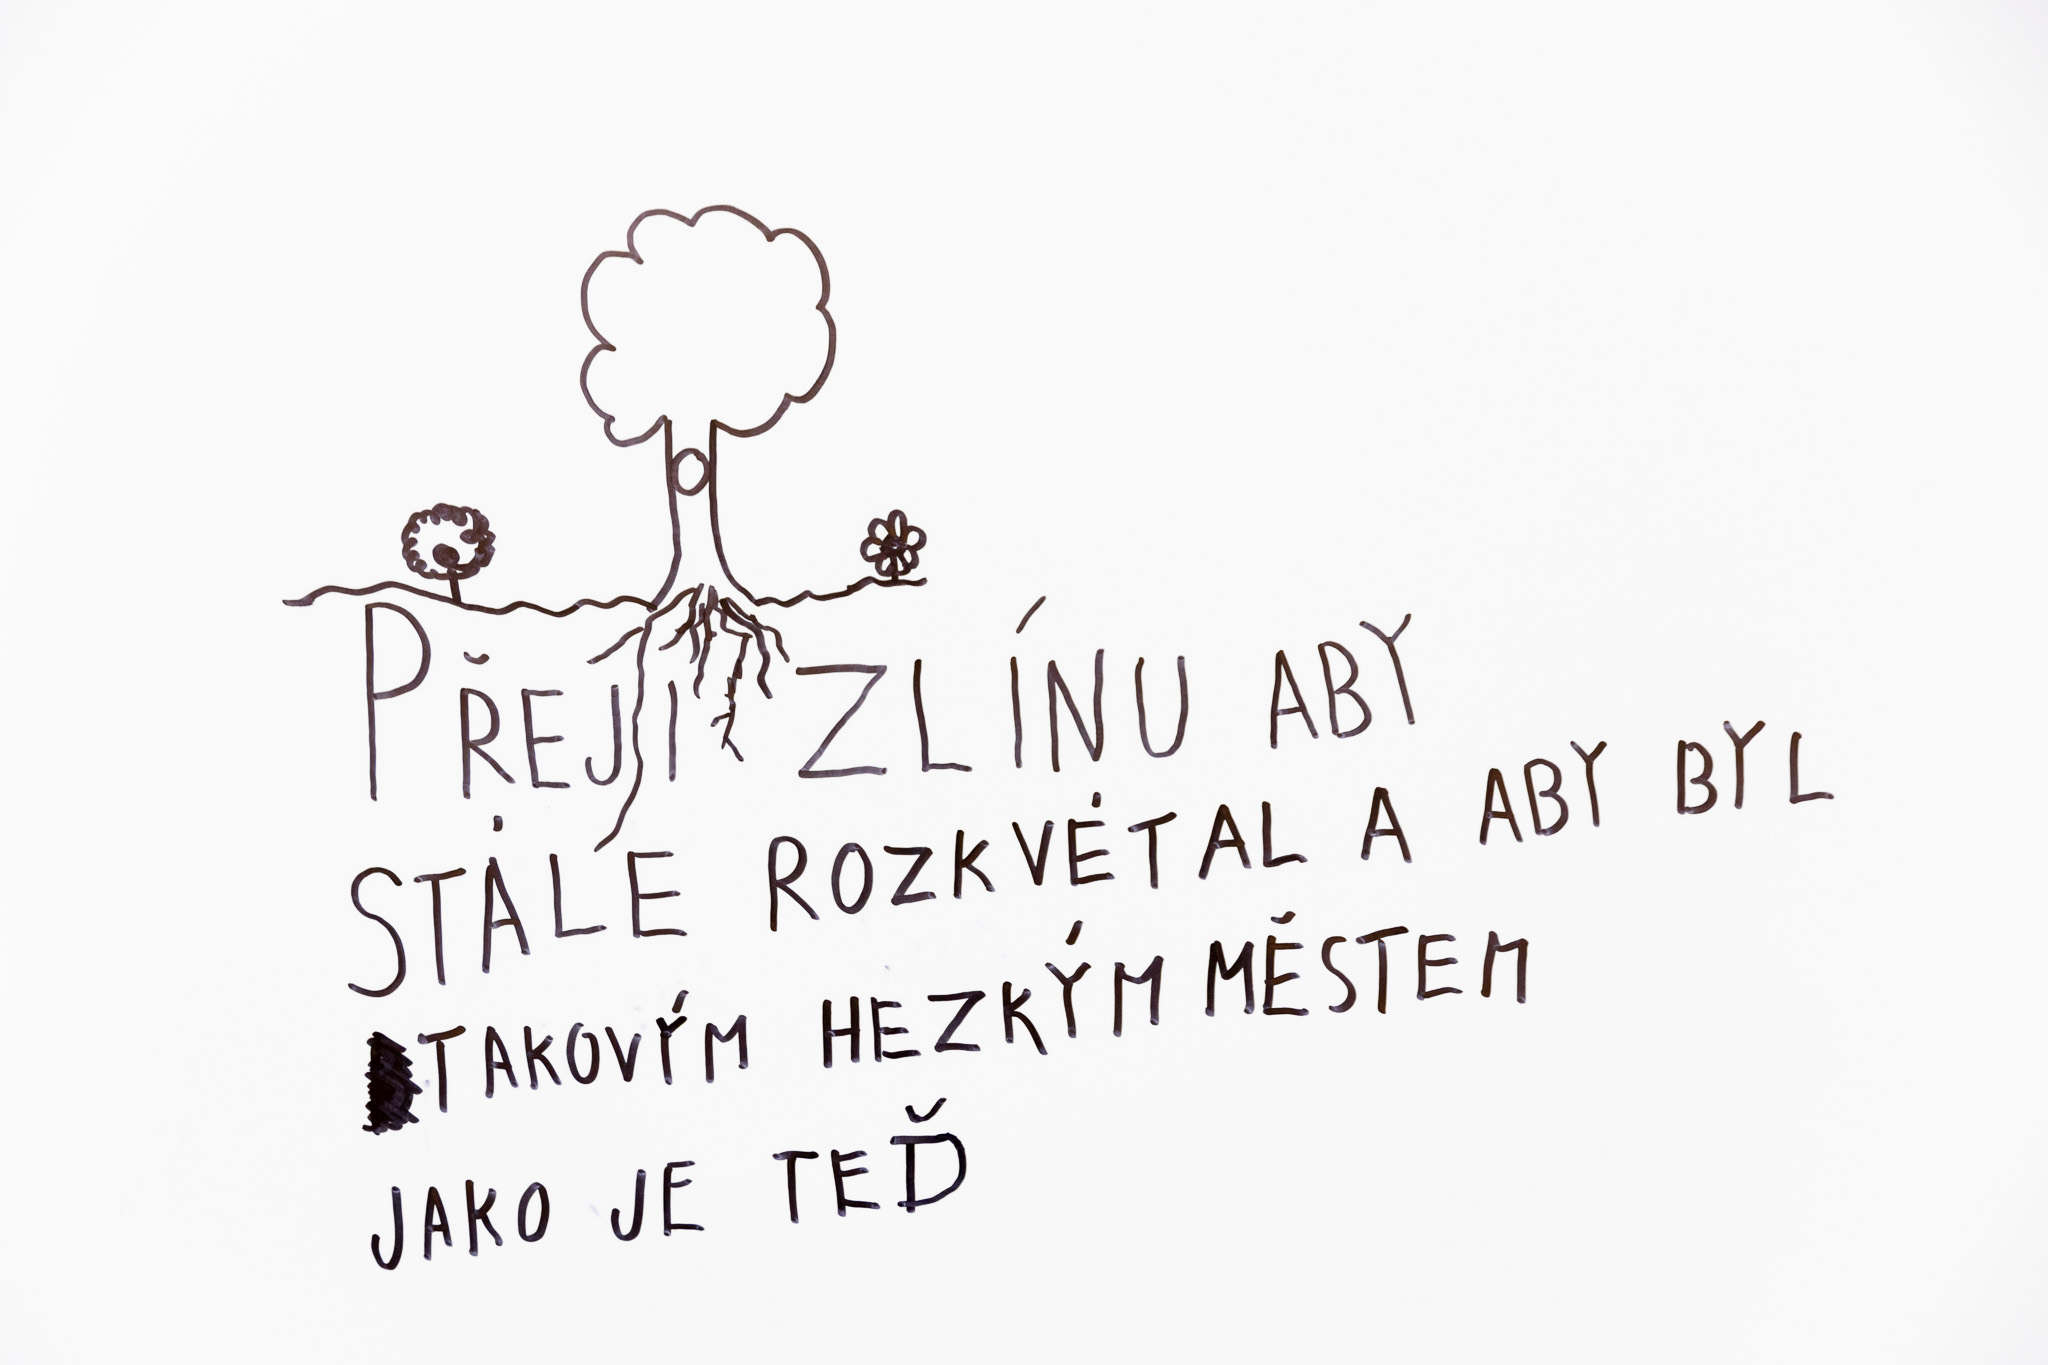 PŘEJI ZLÍNU ABY
STÁLE ROZKVÉTAL A ABY BYL
TAKOVÝM HEZKÝM MĚSTEM
JAKO JE TEĎ